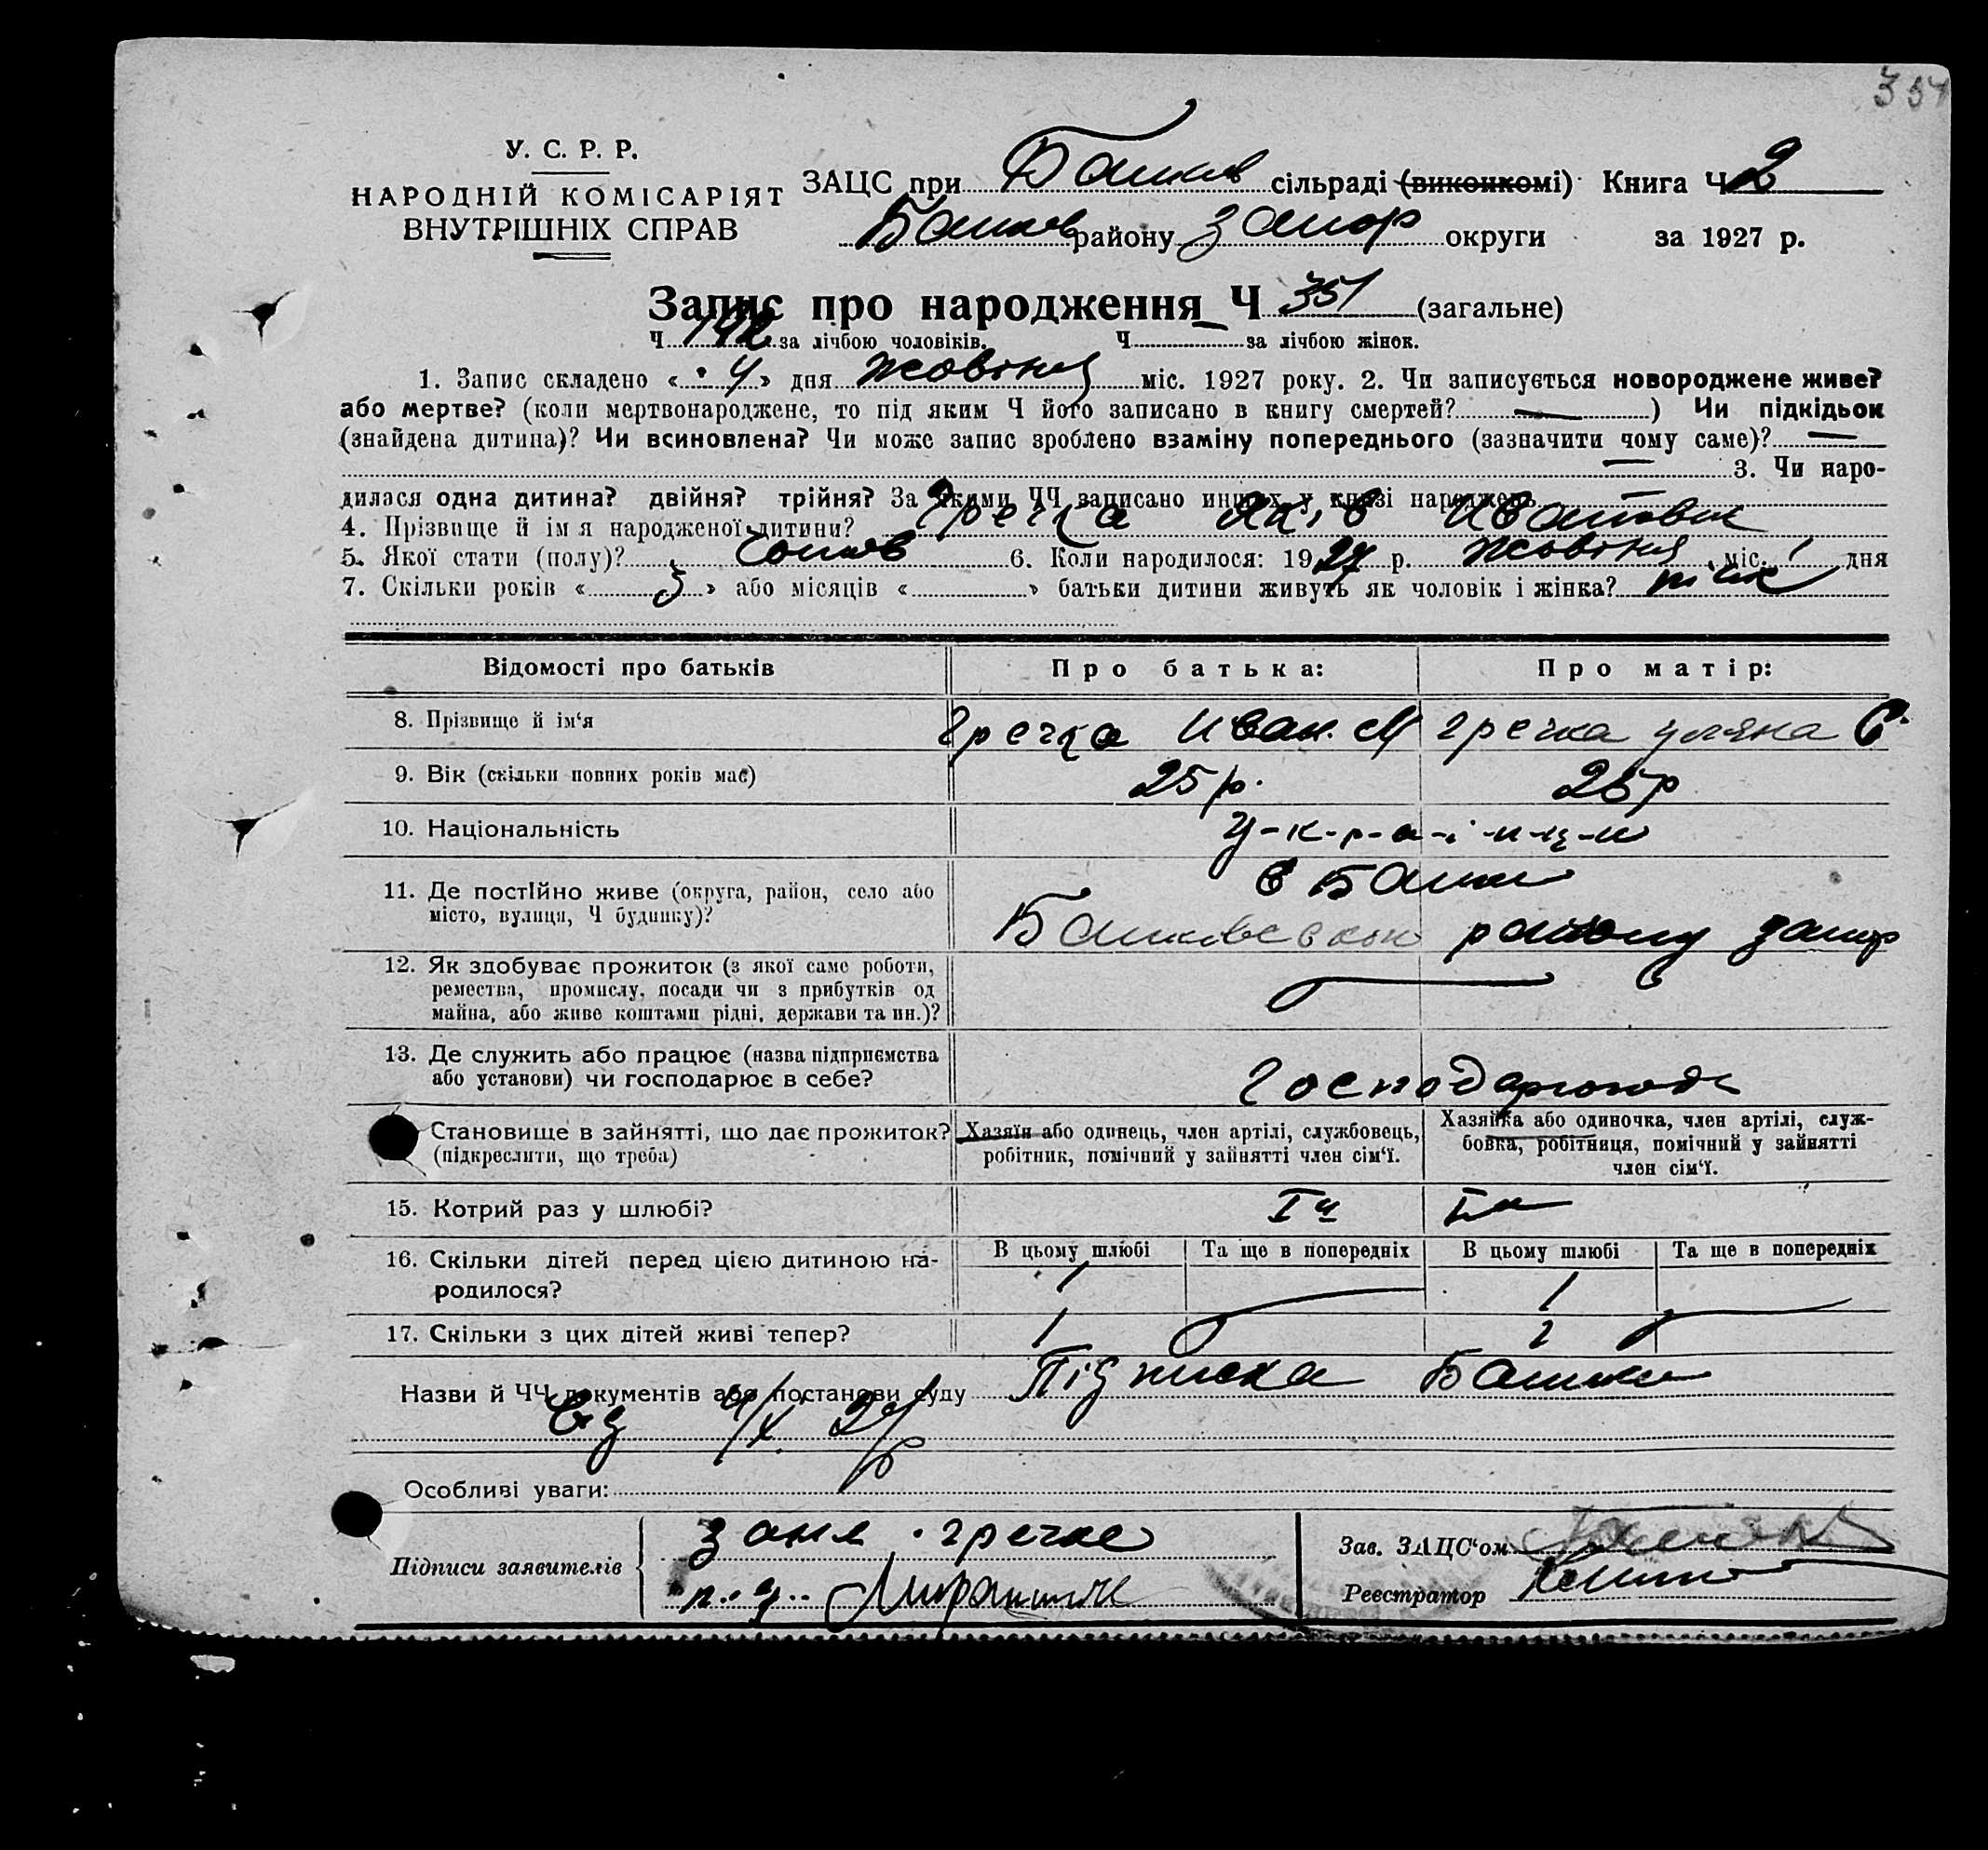 354
У. С. Р. Р.
НАРОДНІЙ КОМІСАРІЯТ
ВНУТРІШНІХ СПРАВ
ЗАЦС при Башків сільраді (виконкомі) Книга Ч 2
Башків району Запор округи за 1927 р.
Запис про народження Ч 351 (загальне)
Ч 192 за лічбою чоловіків. Ч за лічбою жінок.
1. Запис складено « 4 » дня жовтня міс. 1927 року. 2. Чи записується новороджене живе?
або мертве? (коли мертвонароджене, то під яким Ч його записано в книгу смертей? — ) Чи підкідьок
(знайдена дитина)? Чи всиновлена? Чи може запис зроблено взаміну попереднього (зазначити чому саме)? —
— 3. Чи наро-
дилася одна дитина? двійня? трійня? За якими ЧЧ записано инших у книзі народжень —
4. Прізвище й ім я народженої дитини? Гречка Яків Иванович
5. Якої стати (полу)? 6. Коли народилося: 1927 р. жовтня міс. 1 дня
7. Скільки років « 5 » або місяців « » батьки дитини живуть як чоловік і жінка?
Відомості про батьків Про батька: Про матір:
8. Прізвище й ім‘я Гречка Иван. М гречка уляна С.
9. Вік (скільки повних років має) 25 р. 25 р
10. Національність У-к-р-а-ї-н-ц-и
11. Де постійно живе (округа, район, село або
місто, вулиця, Ч будинку)?
району Запор
12. Як здобуває прожиток (з якої саме роботи,
ремества, промислу, посади чи з прибутків од
майна, або живе коштами рідні, держави та ин.)? —
13. Де служить або працює (назва підприємства
або установи) чи господарює в себе?
Становище в зайнятті, що дає прожиток?
(підкреслити, що треба)
Хазяїн або одинець, член артілі, службовець,
робітник, помічний у зайнятті член сім‘ї.
Хазяйка або одиночка, член артілі, служ-
бовка, робітниця, помічний у зайнятті
член сім‘ї.
15. Котрий раз у шлюбі? Iй Iй
16. Скільки дітей перед цією дитиною на-
родилося?
В цьому шлюбі Та ще в попередніх В цьому шлюбі Та ще в попередніх
1 — 1 —
17. Скільки з цих дітей живі тепер? 1 1
Назви й ЧЧ документів або постанови суду Підписка
від 4/X 27 р
Особливі уваги:
Підписи заявителів
Зав. ЗАЦС‘ом
Реєстратор